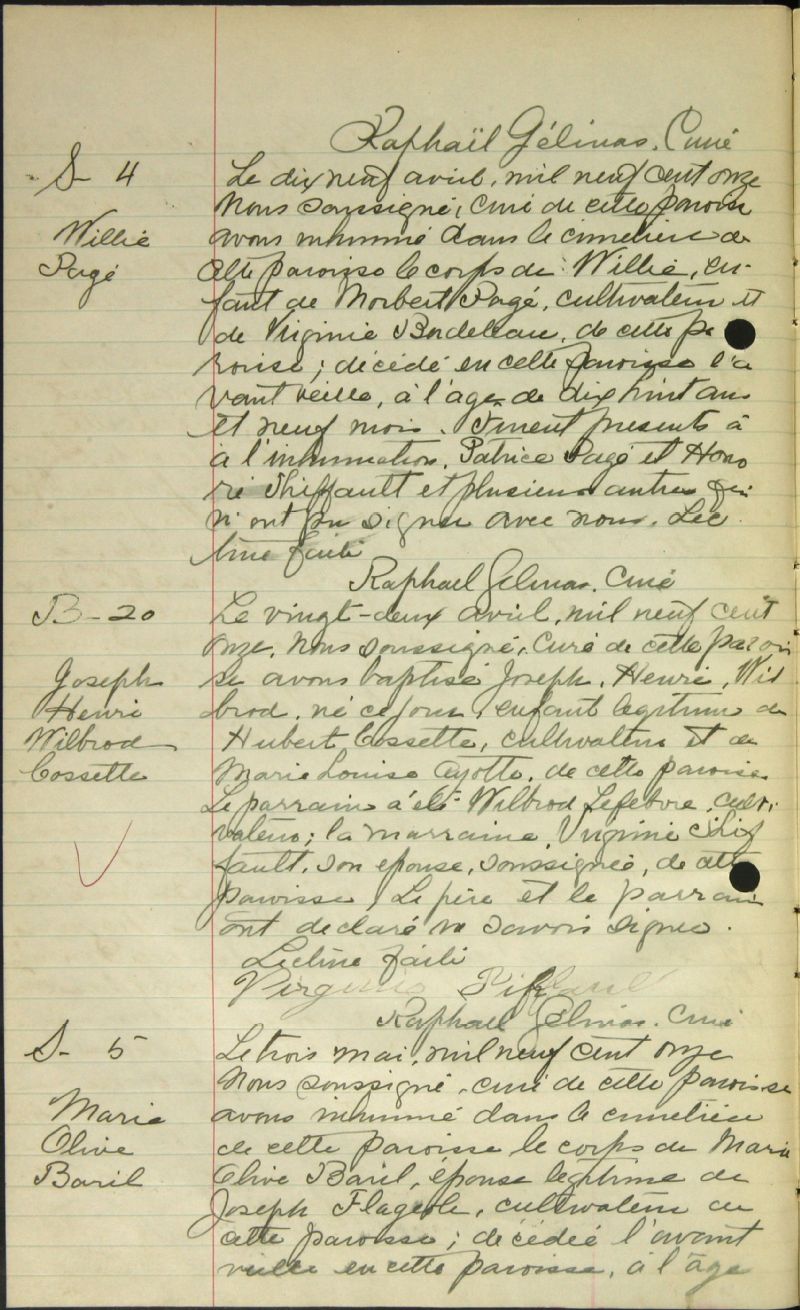 Raphaël Gélinas. Curé
S- 4
Le dix neuf avril, mil neuf cent onze
Nous soussigné, curé de cette paroisse
Willie
avons inhumé dans le cimetière de
Pagé
cette paroisse le corps de Willie, en-
fant de Norbert Pagé, cultivateur et
de Virginie Bordeleau, de cette pa
roisse; décédé en cette paroisse l'a
vant veille, à l'age de dix huit ans
et neuf mois. Furent presents à
à l'inhumation, Patrice Pagé et Hono
ré Thiffault et plusieurs autres qui
n'ont pu signer avec nous. Lec
ture faite
Raphael Gelinas. Curé
B- 20
Le vingt-deux avril, mil neuf cent
onze, nous soussigné, Curé de cette parois
Joseph
se avons baptisé Joseph, Henri, Wil
Henri
brod, né ce jour, enfant legitime de
Wilbrod
Hubert Cossette, cultivateur et de
Cossette
Marie Louise Ayotte, de cette paroisse
Le parrain a été Wilbrod Lefebvre, culti
vateur; la marraine, Virginie Thif
fault, son epouse, soussignée, de cette
paroisse. Le père et le parrain
ont declaré ne savoir signer.
Lecture faite
Virginie Tiffault
Raphael Gelinas. Curé
S- 5
Le trois mai, mil neuf cent onze
Nous soussigné, curé de cette paroisse
Marie
avons inhumé dans le cimetière
Olive
de cette paroisse le corps de Marie
Baril
Olive Baril, épouse légitime de
Joseph Flageole, cultivateur de
cette paroisse; décédée l'avant
veille en cette paroisse, à l'âge